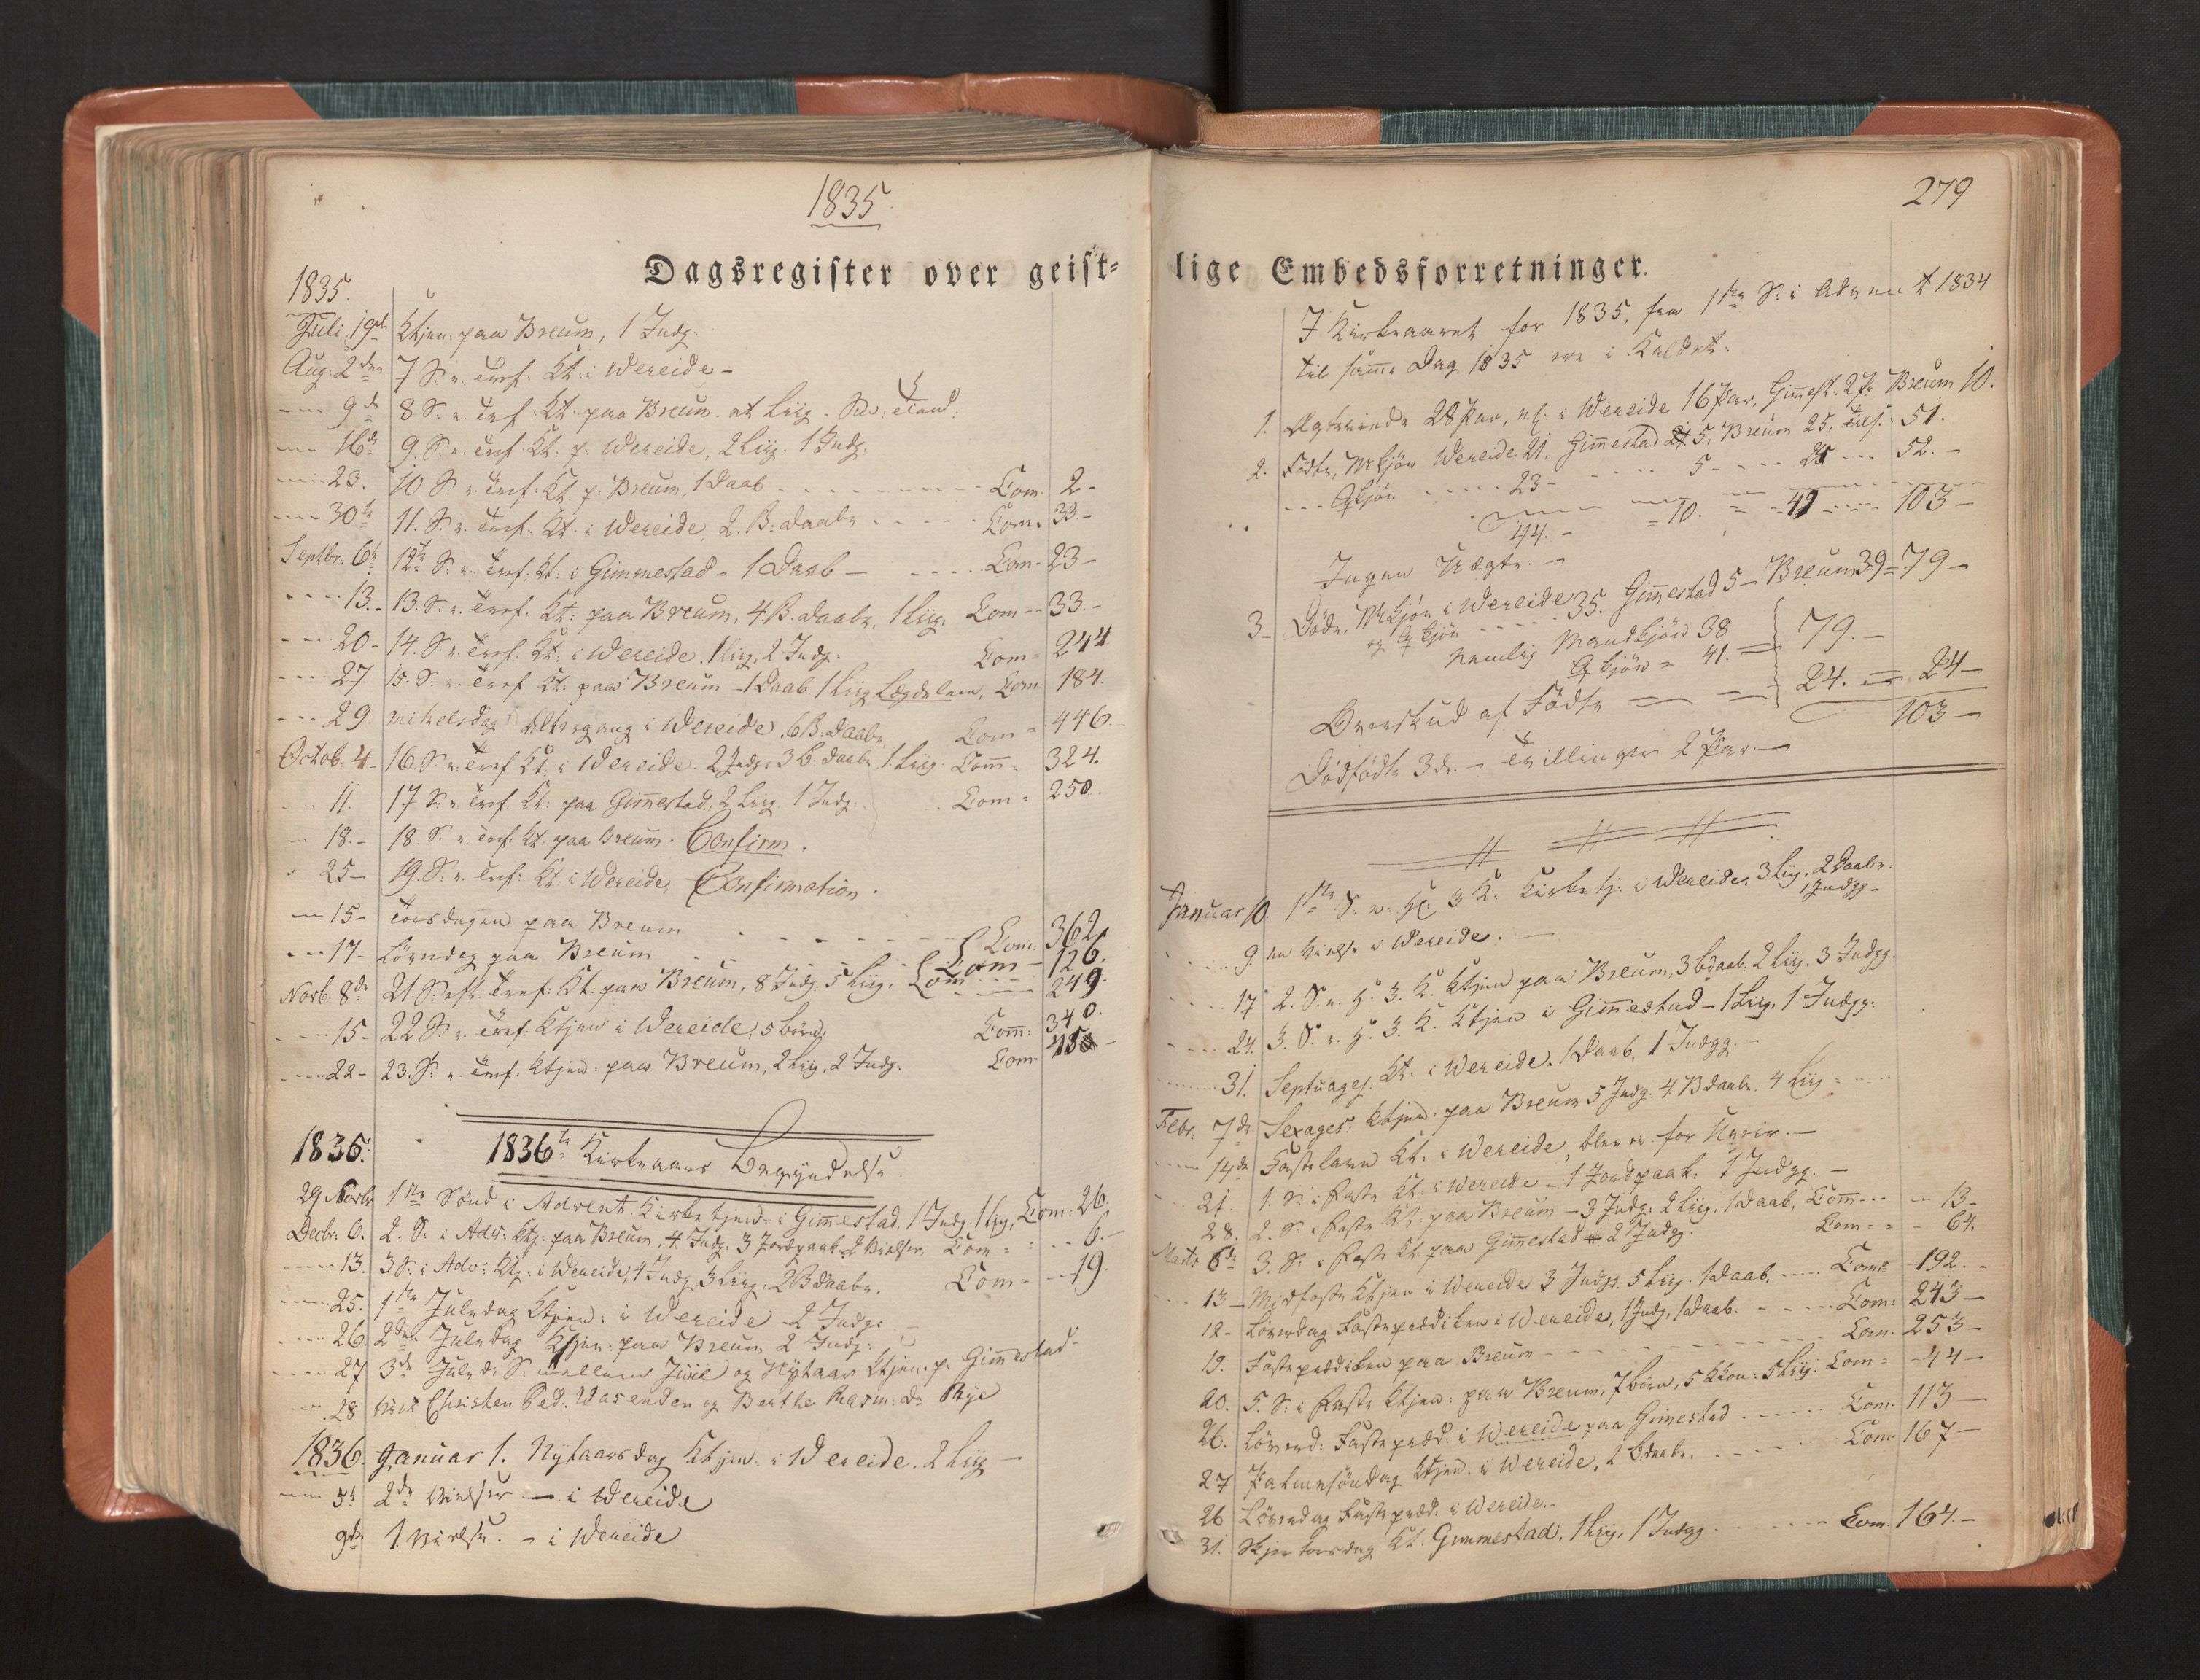 1835
Dagsregister over geist-
1835.
Juli 19de Ktjen: paa Breum, 1 Indg.
Aug: 2den 7 S. e. Tref. Kt: i Wereide -
9de 8 S. e. Tref. Kt: paa Breum. at Liig.
16de 9. S. e. Tref Kt: p: Wereide, 2 Liig. 1 Indg.
23. 10 S. e. Tref: Kt: p: Breum, 1 Daab Com. 2-
30te 11. S. e. Tref. Kt. i Wereide 2. B. Daabe Com. 33.-
Septbr. 6te 12te S. e. Tref: Kt: i Gimmestad - 1 Daab - Com- 23-
13.- 13. S. e. Tref: Kt: paa Breum, 4. B. Daabe, 1 Liig. Com-- 33.-
20- 14. S. e. Tref. Kt: i Wereide. 1 Liig, 2 Indg: Com= 244
27. 15. S. e. Tref Kt: paa Breum - 1 Daab. 1 Liig Lægdslem, Com 184.
29. Mikelsdag Altergang i Wereide. 6 B. Daabe Com = 446
Octob: 4- 16. S. e. Tref Kt: i Wereide. 2 Indg: 3 B. Daabe 1 Liig. Com= 324.
11. 17 S. e. Tref. Kt: paa Gimestad, 2 Liig. 1 Indg. Com = 250.
18.- 18. S. e. Tref: Kt paa Breum. Confirm.
25- 19. S. e. Tref: Kt i Wereide, Confirmation.
15- Torsdagen paa Breum Com: 362.
17- Lörudag paa Breum Com- 126.
Novb. 8de 21 S. eft. Tref: Kt: paa Breum, 8 Indg. 5 Liig. Com 249.
15- 22 S. e. Tref: Ktjen i Wereide, 5 Börn, Com: 340.
22- 23. S. e. Tref. Ktjen: paa Breum, 2 Liig, 2 Indg. Com-
1836: 1836te Kirkeaars Begyndelse
29 Novbr 1ste Sönd i Advent. Kirketjen: i Gimestad. 1 Indg. 1 Liig, Com: 26.
Decbr: 6. 2. S. i Adv: Ktj: paa Breum, 4. Indg. 3 Jordpaak. 2 Vielser. Com= 6.-
13. 3 S: i Adv: Ktj: i Wereide, 4 Indg. 3 Liig. 2 B Daabe. Com= 19.
25. 1ste Juledag Ktjen: i Wereide - 2 Indg:
26. 2den Juledag Ktjen: paa Breum 2 Indg:
27 3de Juled: S: mellem Juul og Nytaar Ktjen: p: Gimestad-
28 Viet Christen Ped. Wasenden og Berthe Rasm: Dr. Rye
1836. Januar 1. Nytaarsdag Ktjen. i Wereide. 2 Liig -
5te 2de Vielser - i Wereide
9de 1. Vielse. - i Wereide
279
lige Embedsforretninger.
I Kirkeaaret for 1835, fra 1ste S: i Advent 1834
til samme Dag 1835 ere i Kaldet:
1. Ægteviede 28 Par, nl: i Wereide 16 Par, Gimest: 2. Pr Breum 10.
2. Födte, Mkjön Wereide 21, Gimmestad 5, Breum 25, Tils: 51.
Qkjön 23- 5- 52.-
44.- =10.= 103-
Ingen Uægte.-
3- Döde, Mkjön i Wereide 35. Gimestad 5- Breum 39= 79-
og Qkjön
Nemlig Mandkjön 38 79.-
Qkjön = 41.=
Overskud af Födte 24. = 24-
103-
Dödfödte 3de.- Tvillinger 2 Par.-
Januar 10. 1ste S. e. H. 3 K. Kirketj: i Wereide. 3 Liig, 2 Daabe.
1 Indgg-
9. en Vielse i Wereide.-
17 2. S. e. H. 3. K. Ktjen paa Breum, 3 bdaab, 2 Liig. 3 Indgg.
24. 3. S. e. H. 3. K. Ktjen i Gimestad - 1 Liig, 1 Indgg:
31. Septuages. Kt: i Wereide. 1 Daab, 1 Indgg.-
Febr. 7de Sexages: Ktjen: paa Breum 5 Indg: 4 B daabe. 4 Liig-
14de Fastelavn Kt: i Wereide, blev ei for Uveir.-
21. 1. S: i Faste Kt: i Wereide - 1 Jordpaak: 1 Indgg.-
28. 2. S: i Faste Kt. paa Breum - 3 Indg: 2 Liig. 1 Daab, Com- 13-
Marts 6te 3. S: i Faste Kt paa Gimestad 2 Indg. Com= 64.
13- Midfaste Ktjen i Wereide 3 Indg. 5 Liig. 1 Daab. Com= 192.-
12- Löverdag Fasteprædiken i Wereide, 1 Indg, 1 Daab. Com: 243-
19. Fasteprædiken paa Breum Com. 253-
20. 5. S: i Faste Ktjen: paa Breum, 7 börn, 5 Kkon: 5 Liig. Com= 44-
26. Löverd: Fastepræd: i Wereide paa Gimestad Com. 113-
27 Palmesöndag Ktjen. i Wereide, 2 Bdaabe. Com. 167-
26 Löverdag Fastepræd: i Wereide.-
31. Skjertorsdag Kt: Gimmestad, 1 Liig, 1 Indgg. Com. 164.-